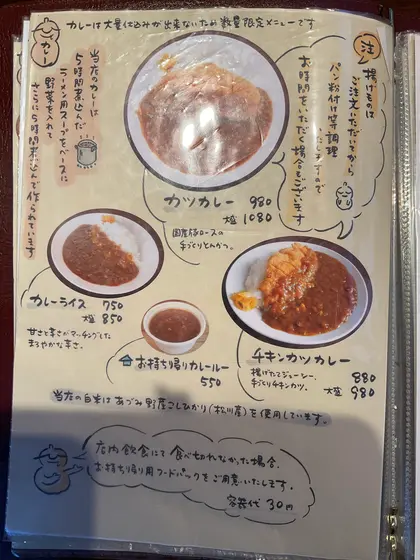 カレーは大量仕込みが出来ないため数量限定メニューです
カレー
当店のカレーは
5時間煮込んだ
ラーメン用スープをベースに
野菜を入れて
さらに5時間煮込んで作られています
注
揚げものは
ご注文いただいてから
パン粉付け等調理
いたしますので
お時間をいただく場合もございます
カツカレー 980
大盛 1080
国産豚ロースの
手づくりとんかつ。
カレーライス 750
大盛 850
甘さと辛さがマッチングした
まろやかな辛さ。
お持ち帰りカレールー
550
チキンカツカレー
880
大盛 980
揚げたてジューシー、
手づくりチキンカツ。
当店の白米はあづみ野産こしひかり(松川産)を使用しています。
店内飲食にて食べ切れなかった場合、
お持ち帰り用フードパックをご用意いたします。
容器代 30円